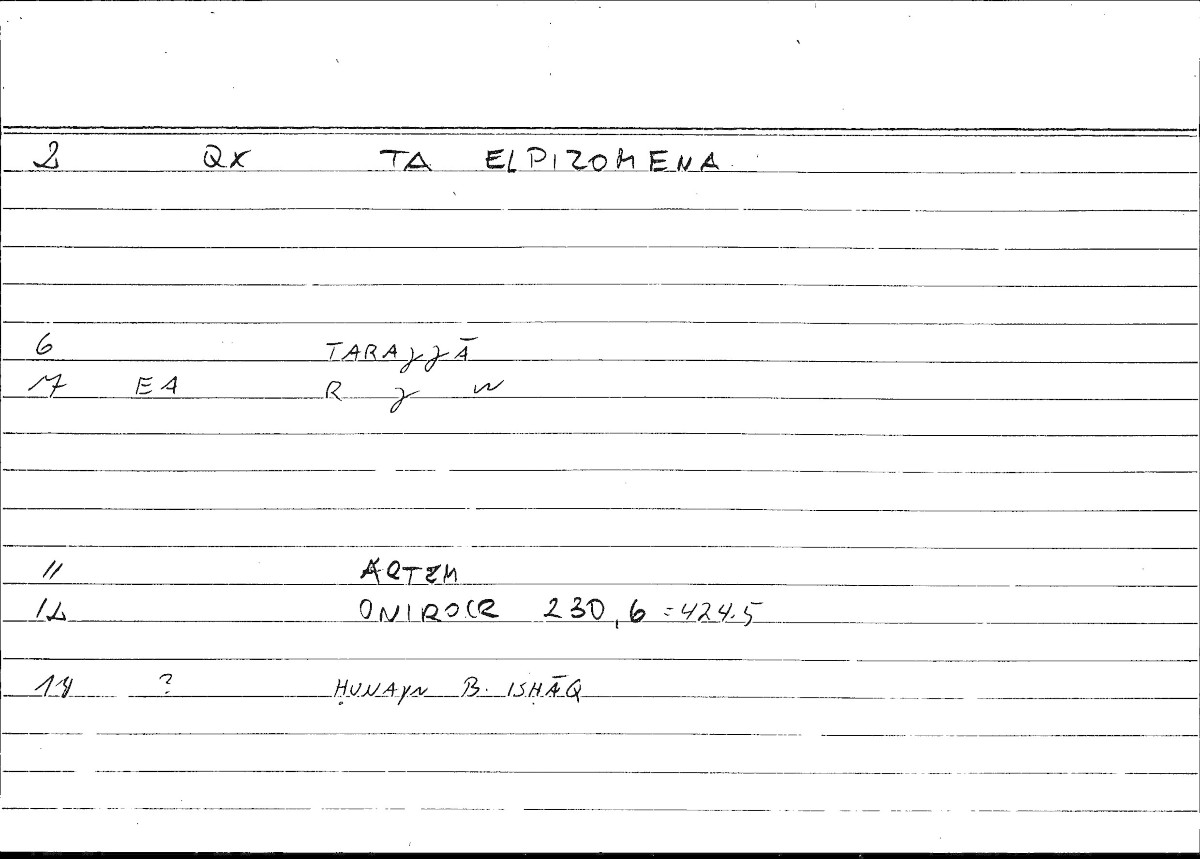 2 QX TA ELPIZOMENA
6 TARAJJĀ
17 EA R J W
11 ARTEM
12 ONIROCR 230,6 =424.5
14 ? ḤUNAYN B. ISḤĀQ